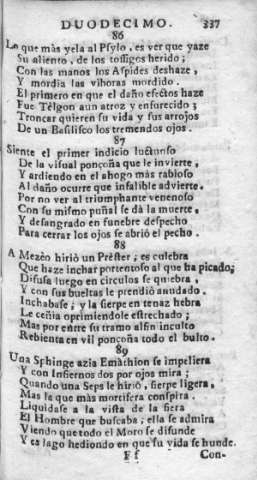 DUODECIMO. 337
86
Lo que màs yela al Psylo, es ver que yaze
Su aliento, de los tossigos herido;
Con las manos los Aspides deshaze,
Y mordia las viboras mordido.
El primero en que el daño efectos haze
Fue Telgon aun atroz y enfurecido;
Troncar quieren su vida y sus arrojos
De un Basilisco los tremendos ojos.
87
Siente el primer indicio luctuoso
De la visual ponçoña que le invierte,
Y ardiendo en el ahogo màs rabioso
Al daño ocurre que infalible advierte.
Por no ver al triumphante venenoso
Con su mismo puñal se dà la muerte,
Y desangrado en funebre despecho
Para cerrar los ojos se abriò el pecho.
88
A Mezèo hiriò un Prêster; es culebra
Que haze inchar portentoso al que ha picado;
Difusa luego en circulos se quiebra,
Y con sus bueltas le prendiò anudado.
Inchabase; y la sierpe en tenaz hebra
Le ceñia oprimiendole estrechado;
Mas por entre su tramo alfin inculto
Rebienta en vil ponçoña todo el bulto.
89
Una Sphinge azia Emàthion se impeliera
Y con Infiernos dos por ojos mira;
Quando una Seps le hiriò, sierpe ligera,
Mas la que màs mortifera conspira.
Liquidase a la vista de la fiera
El Hombre que buscaba; ella se admira
Viendo que todo el Moro se difunde
Y es lago hediondo en que su vida se hunde.
Ff Con-